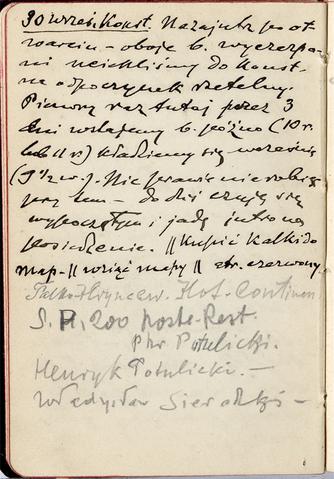 30 wrześ. Konst. Nazajutrz po ot
warciu – oboje b. wyczerpa-
ni uciekliśmy do Konst-
na odpoczynek rzetelny.
Pierwszy raz tutaj przez 3
dni wstajemy b. późno (10 r.
lub 11 r.) kładziemy się wcześnie
(9½ w.). Nic prawie nie robię
przy tem – dziś czuję się
wypoczętym i jadę jutro na
posiedzenie. || Kupić kalki do
map – || wziąć mapy || czerwony
Hryncew. Hot. Continen
S. P. 200 Poste-Rest.
Potulicki.
Henryk Potulicki. –
Władysław Sieradzki –